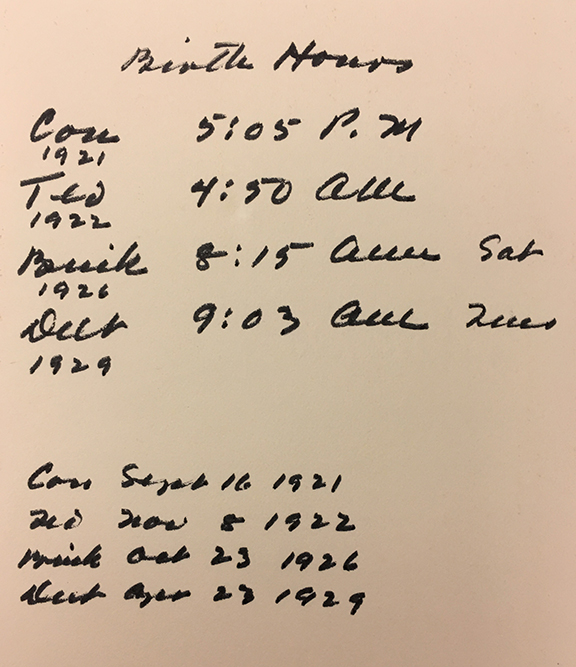 Birth Hours
Con 5:05 P.M
1921
Ted 4:50 AM
1922
8:15 AM Sat
1926
9:03 AM Tues
1929
Con Sept 16 1921
Ted Nov 8 1922
Oct 23 1926
Apr 23 1929